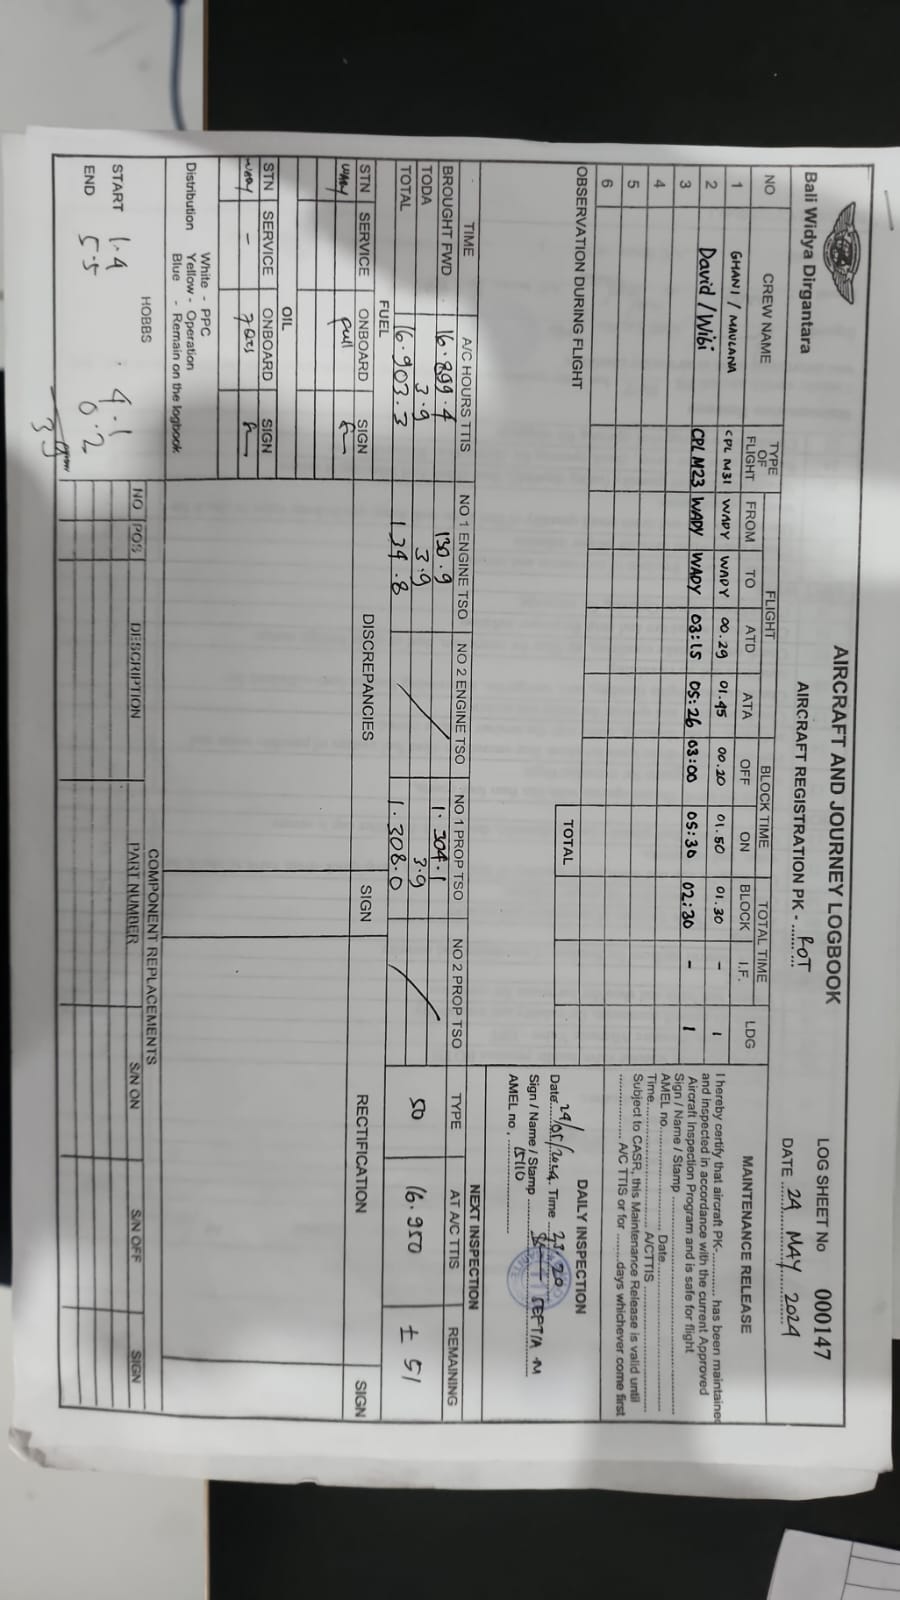 Bali Widya Dirgantara
AIRCRAFT AND JOURNEY LOGBOOK
AIRCRAFT REGISTRATION PK - ROT
LOG SHEET No 000147
DATE 24 MAY 2024
NO CREW NAME TYPE OF FLIGHT FLIGHT BLOCK TIME TOTAL TIME LDG
FROM TO ATD ATA OFF ON BLOCK I.F.
1 GHANI / MAULANA CPL M31 WADY WADY 00.29 01.45 00.20 01.50 01.30 - 1
2 David / Wibi CPL M23 WADY WADY 03:15 05:26 03:00 05:30 02:30 - 1
3
4
5
6
TOTAL
OBSERVATION DURING FLIGHT
MAINTENANCE RELEASE
I hereby certify that aircraft PK-............ has been maintained
and inspected in accordance with the current Approved
Aircraft Inspection Program and is safe for flight
Sign / Name / Stamp
AMEL no. Date
Time A/CTTIS
Subject to CASR, this Maintenance Release is valid until
A/C TTIS or for ........days whichever come first
DAILY INSPECTION
Date 24/05/2024 Time 23.20
Sign / Name / Stamp SEPTIA M
AMEL no. 15110
TIME A/C HOURS TTIS NO 1 ENGINE TSO NO 2 ENGINE TSO NO 1 PROP TSO NO 2 PROP TSO
BROUGHT FWD 16.899.4 130.9 1.304.1
TODA 3.9 3.9 3.9
TOTAL 16.903.3 134.8 1.308.0
NEXT INSPECTION
TYPE AT A/C TTIS REMAINING
50 16.950 ± 51
FUEL
STN SERVICE ONBOARD SIGN
WADY Full
OIL
STN SERVICE ONBOARD SIGN
WADY - 7 Qts
DISCREPANCIES SIGN RECTIFICATION SIGN
Distribution White - PPC
Yellow - Operation
Blue - Remain on the logbook
HOBBS
START 1.4 4.1
END 5.5 0.2
3.9
COMPONENT REPLACEMENTS
NO POS DESCRIPTION PART NUMBER S/N ON S/N OFF SIGN